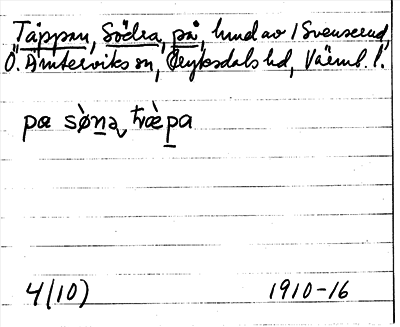 Täppan, Södra, på, hmd av 1 Svenserud,
Ö. Ämterviks sn, Fryksdals hd, Värml. l.
pœ sø̀nạ tæ̀pa
4(10) 1910-16